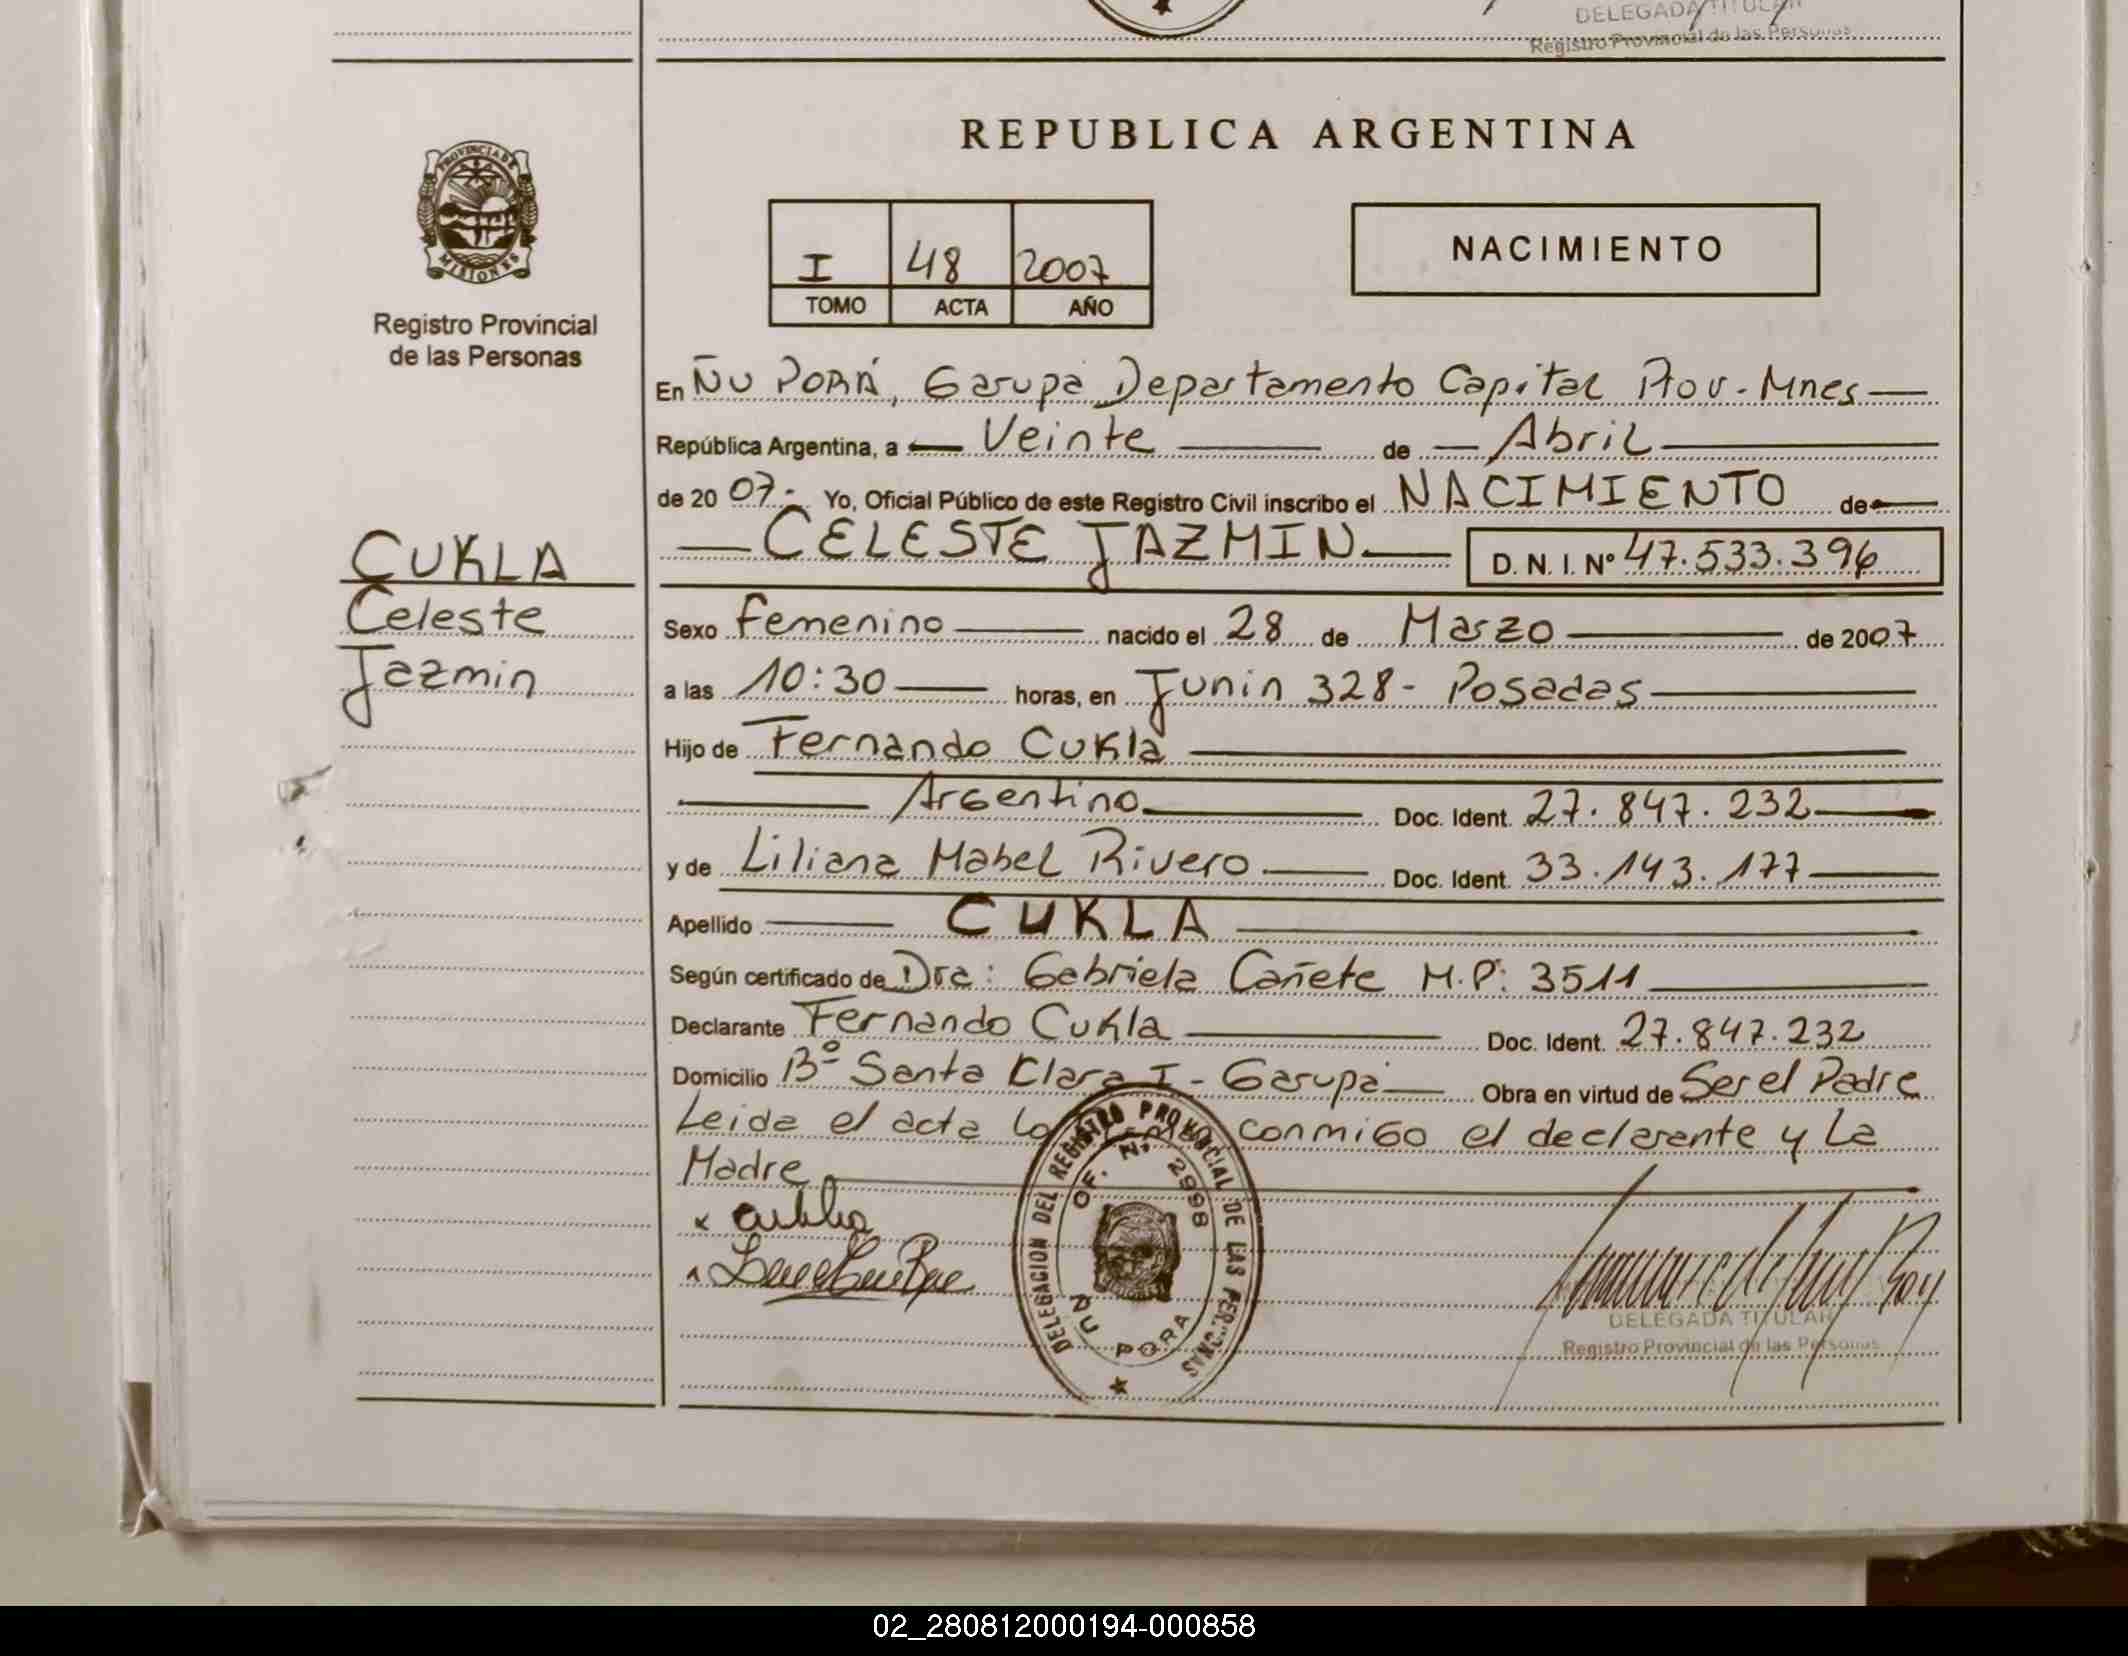 DELEGADA TITULAR
Registro Provincial de las Personas
PROVINCIA DE
MISIONES
Registro Provincial
de las Personas
REPUBLICA ARGENTINA
I 48 2007
TOMO ACTA AÑO
NACIMIENTO
En ÑU PORÁ, Garupá Departamento Capital Prov. Mnes
República Argentina, a Veinte de Abril
de 2007.- Yo, Oficial Público de este Registro Civil inscribo el NACIMIENTO de
CELESTE JAZMIN D. N. I. Nº 47.533.396
CUKLA
Celeste
Jazmin
Sexo Femenino nacido el 28 de Marzo de 2007
a las 10:30 horas, en Junin 328- Posadas
Hijo de Fernando Cukla
Argentino Doc. Ident. 27.847.232
y de Liliana Mabel Rivero Doc. Ident. 33.143.177
Apellido CUKLA
Según certificado de Dra: Gabriela Cañete M.P: 3511
Declarante Fernando Cukla Doc. Ident. 27.847.232
Domicilio Bº Santa Clara I - Garupá Obra en virtud de Ser el Padre
Leida el acta la conmigo el declarante y La
Madre
x Cukla
DELEGACION DEL REGISTRO PROVINCIAL DE LAS PERSONAS
OF. Nº 2998
ÑU PORA
DELEGADA TITULAR
Registro Provincial de las Personas
02_280812000194-000858